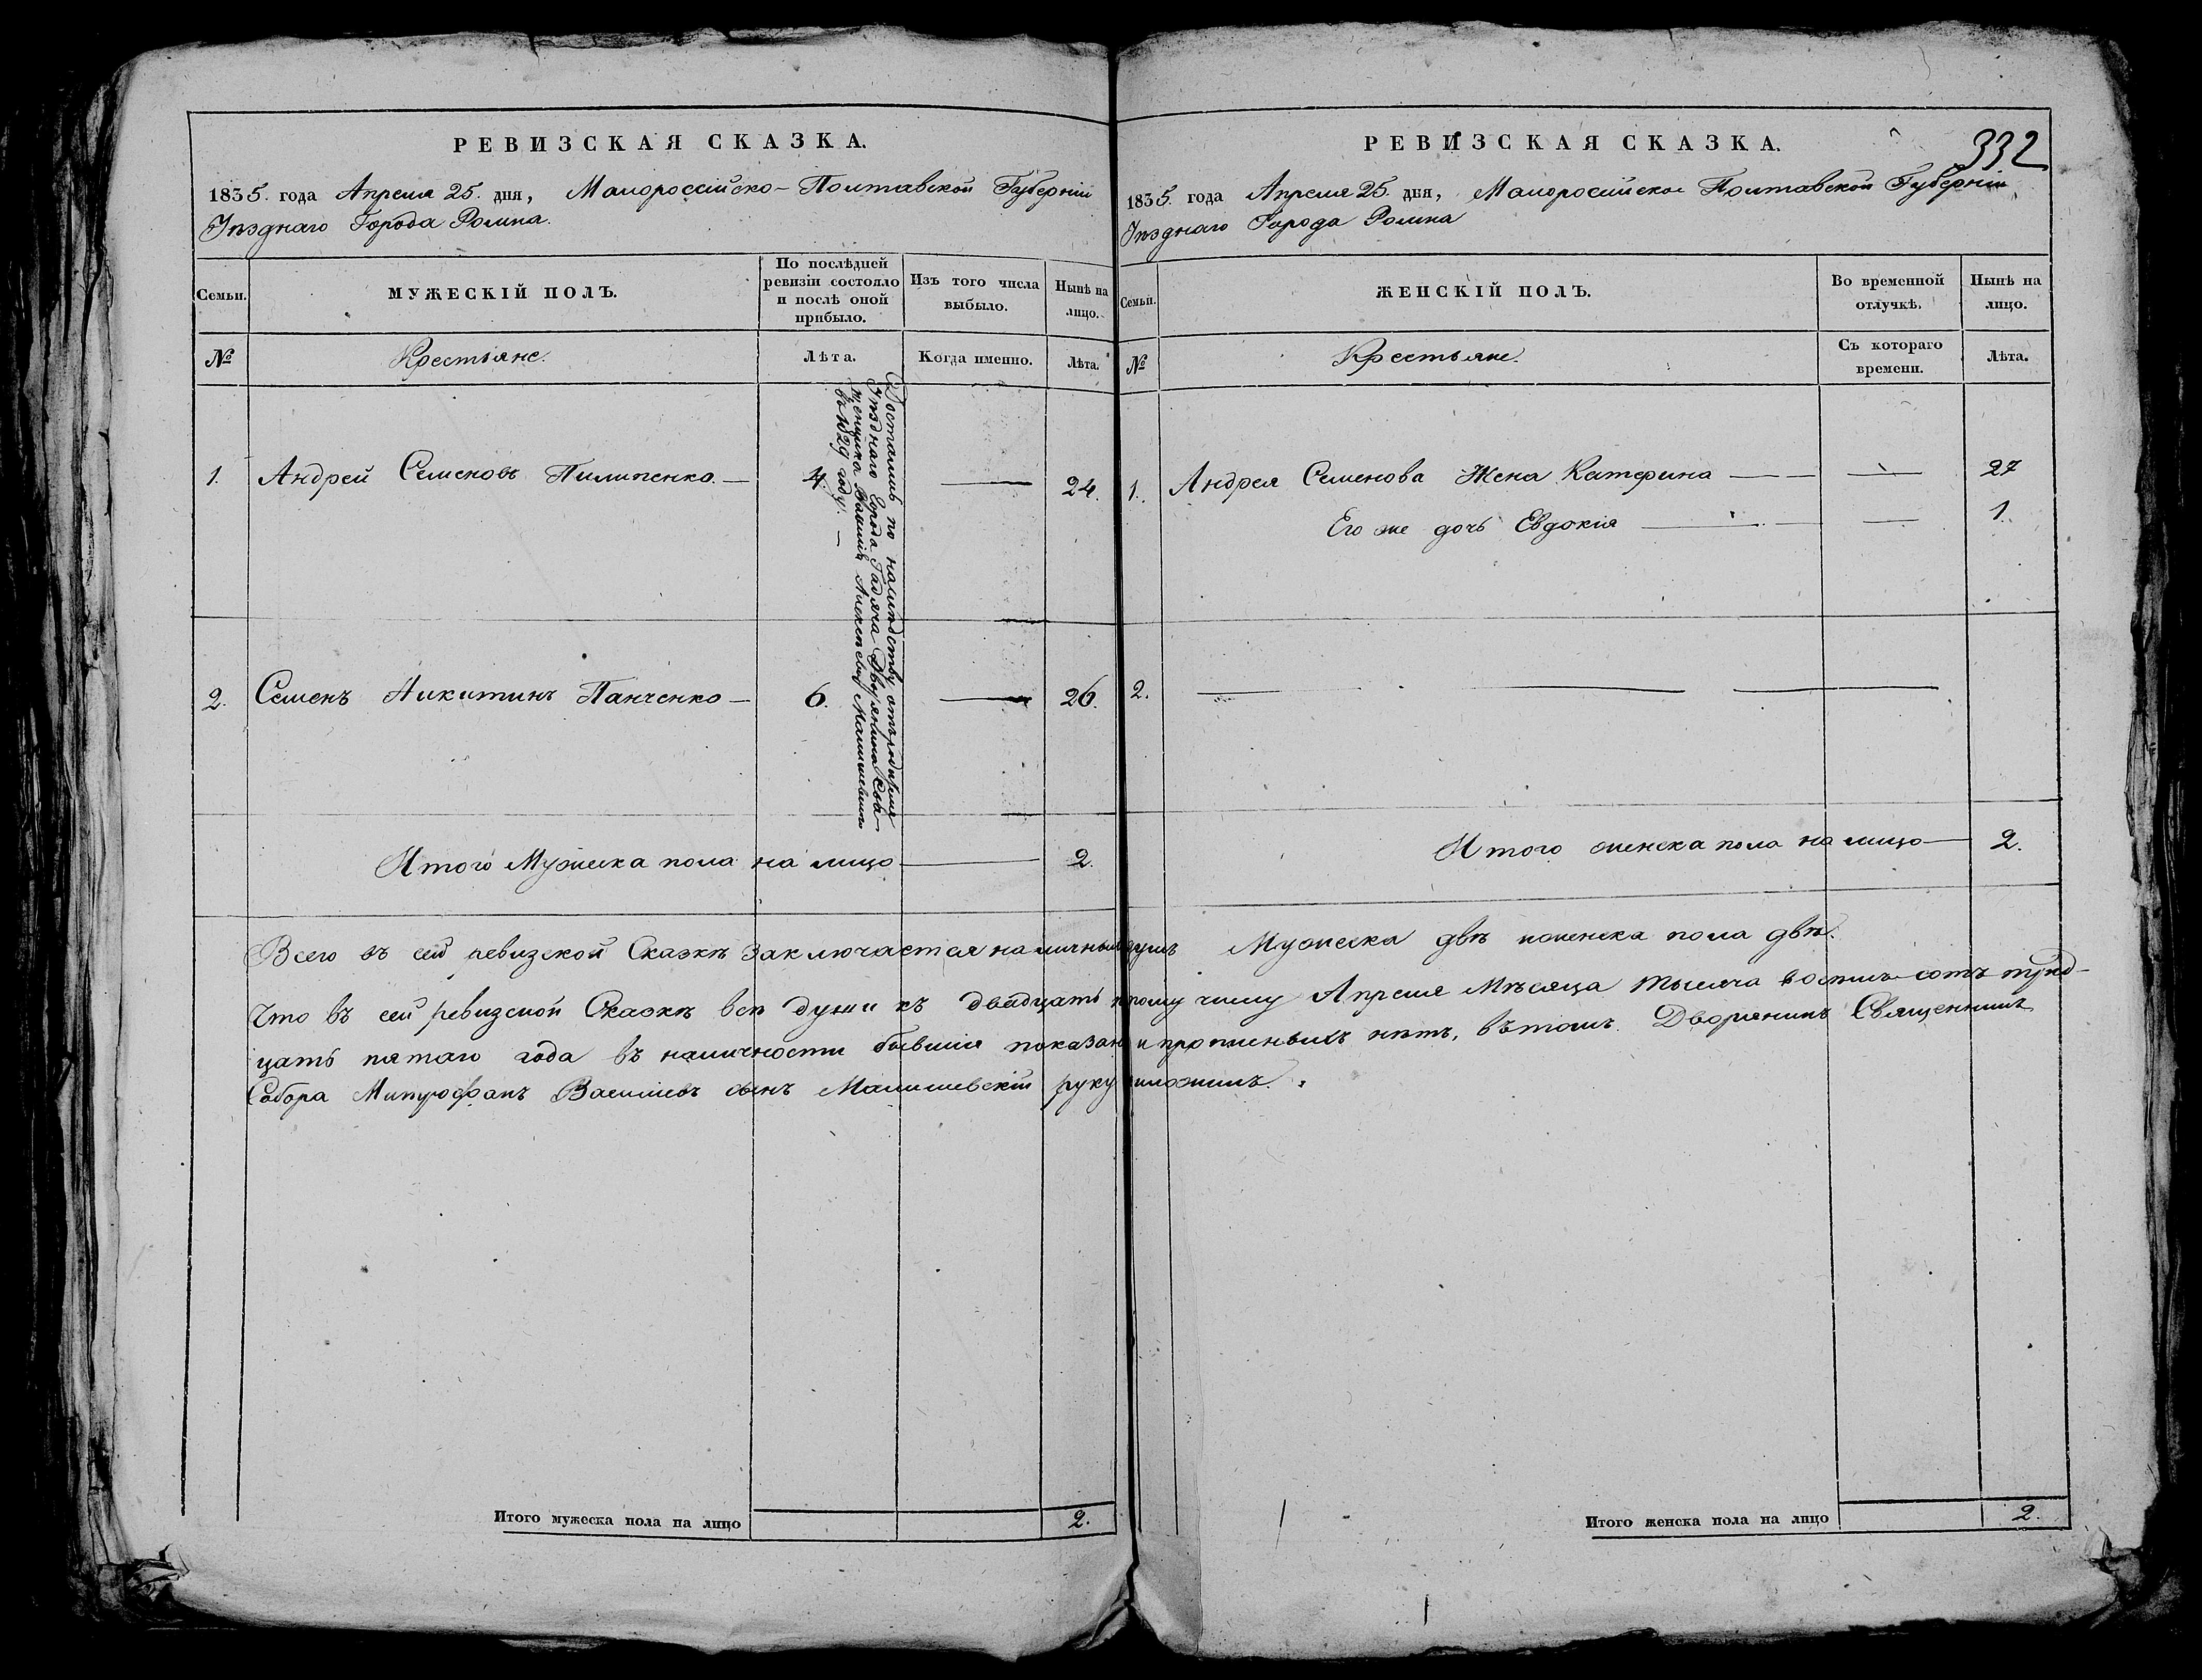 РЕВИЗСКАЯ СКАЗКА.
1835. года Апреля 25. дня, Малороссійско-Полтавской Губерніи
Уѣзднаго Города Ромна.
Семьи.
МУЖЕСКІЙ ПОЛЪ.
По послѣдней
ревизіи состояло
и послѣ оной
прибыло.
Изъ того числа
выбыло.
Нынѣ на
лицо.
№
Крестьяне.
Лѣта.
Когда именно.
Лѣта.
1. Андрей Семеновъ Пилипенко. — 4. — 24.
Достались по наслѣдству отъ родителя
Уѣзднаго Города Гадяча Дворянина Собо-
 Священика Василія Алексѣева Малишевского
въ 1829 году. —
2. Семенъ Никитинъ Панченко — 6. — 26.
Итого Мужеска пола на лицо — 2.
РЕВИЗСКАЯ СКАЗКА.
332
1835. года Апреля 25. дня, Малоросійско Полтавской Губерніи
Уѣзднаго Города Ромна
Семьи.
ЖЕНСКІЙ ПОЛЪ.
Во временной
отлучкѣ.
Нынѣ на
лицо.
№
Крестьяне.
Съ котораго
времени.
Лѣта.
1. Андрея Семенова Жена Катерина — — — 27
Его же дочь Евдокія — — 1.
2. — — —
Итого женска пола на лицо — 2.
Всего въ сей ревизской Сказкѣ заключается наличныхъ душъ Мужеска двѣ и женска пола двѣ.
Что въ сей ревизской Сказкѣ всѣ души къ двадцать пятому числу Апреля Мѣсяца тысяча восемь сотъ трид-
цать пятаго года въ наличности бывшія показаны и прописныхъ нѣтъ, въ томъ. Дворянинъ Священникъ
Собора Митрофанъ Васильевъ сынъ Малишевскій руку приложилъ.
Итого мужеска пола на лицо 2.
Итого женска пола на лицо 2.